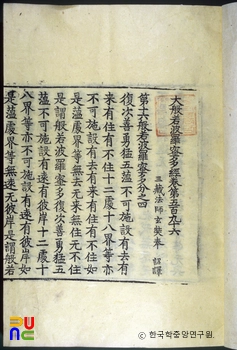 大般若波羅蜜多經卷第五百九十六
三藏法師玄奘奉 詔譯
第十六般若波羅蜜多分之四
復次善勇猛五蘊不可施設有去有
来有住有不住十二處十八界等亦
不可施設有去有来有住有不住如
是蘊處界等無去無来無住無不住
是謂般若波羅蜜多復次善勇猛五
蘊不可施設有遠有彼岸十二處十
八界等亦不可施設有遠有彼岸如
是蘊處界等無遠無彼岸是謂般若
ⓒ 한국학중앙연구원